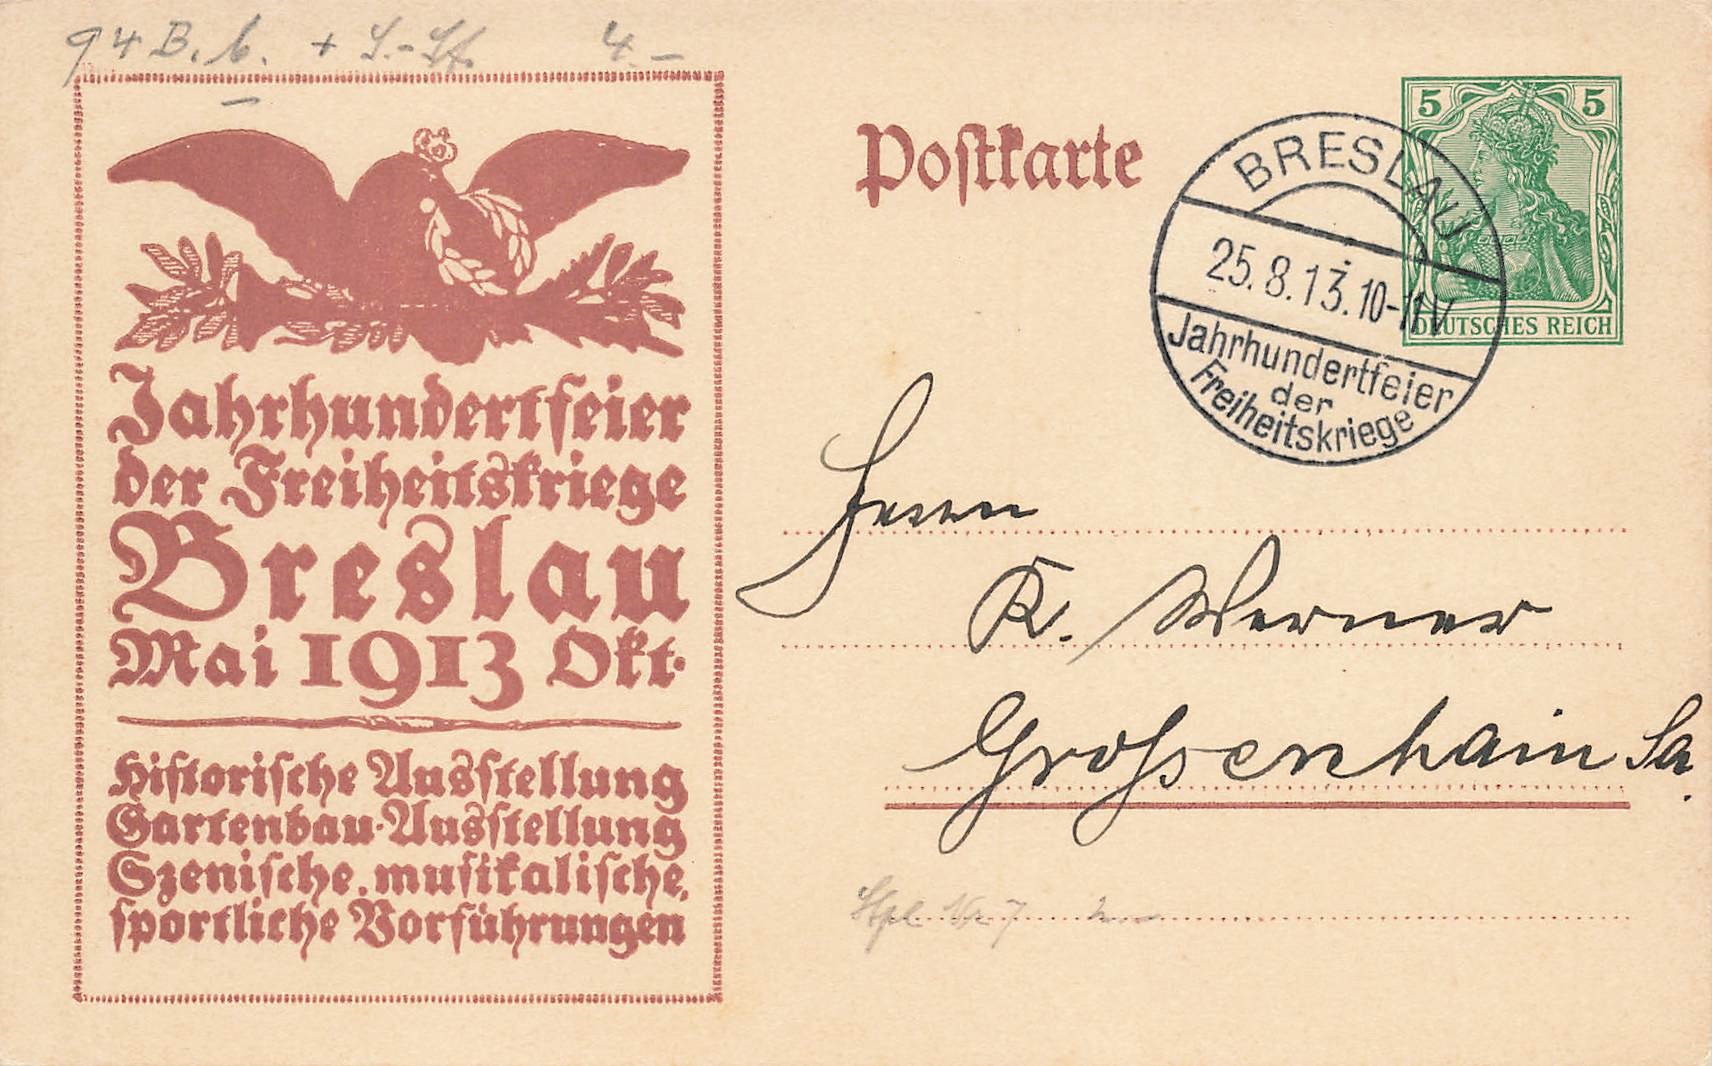 94 B. b. + S.-Sf. 4.-
Jahrhundertfeier
der Freiheitskriege
Breslau
Mai 1913 Okt.
Historische Ausstellung
Gartenbau-Ausstellung
Szenische, musikalische,
sportliche Vorführungen
Postkarte
5 5
DEUTSCHES REICH
BRESLAU
25.8.13.10-11V
Jahrhundertfeier
der
Freiheitskriege
Herrn
K. Werner
Großenhain Sa.
Stpl Nr 7